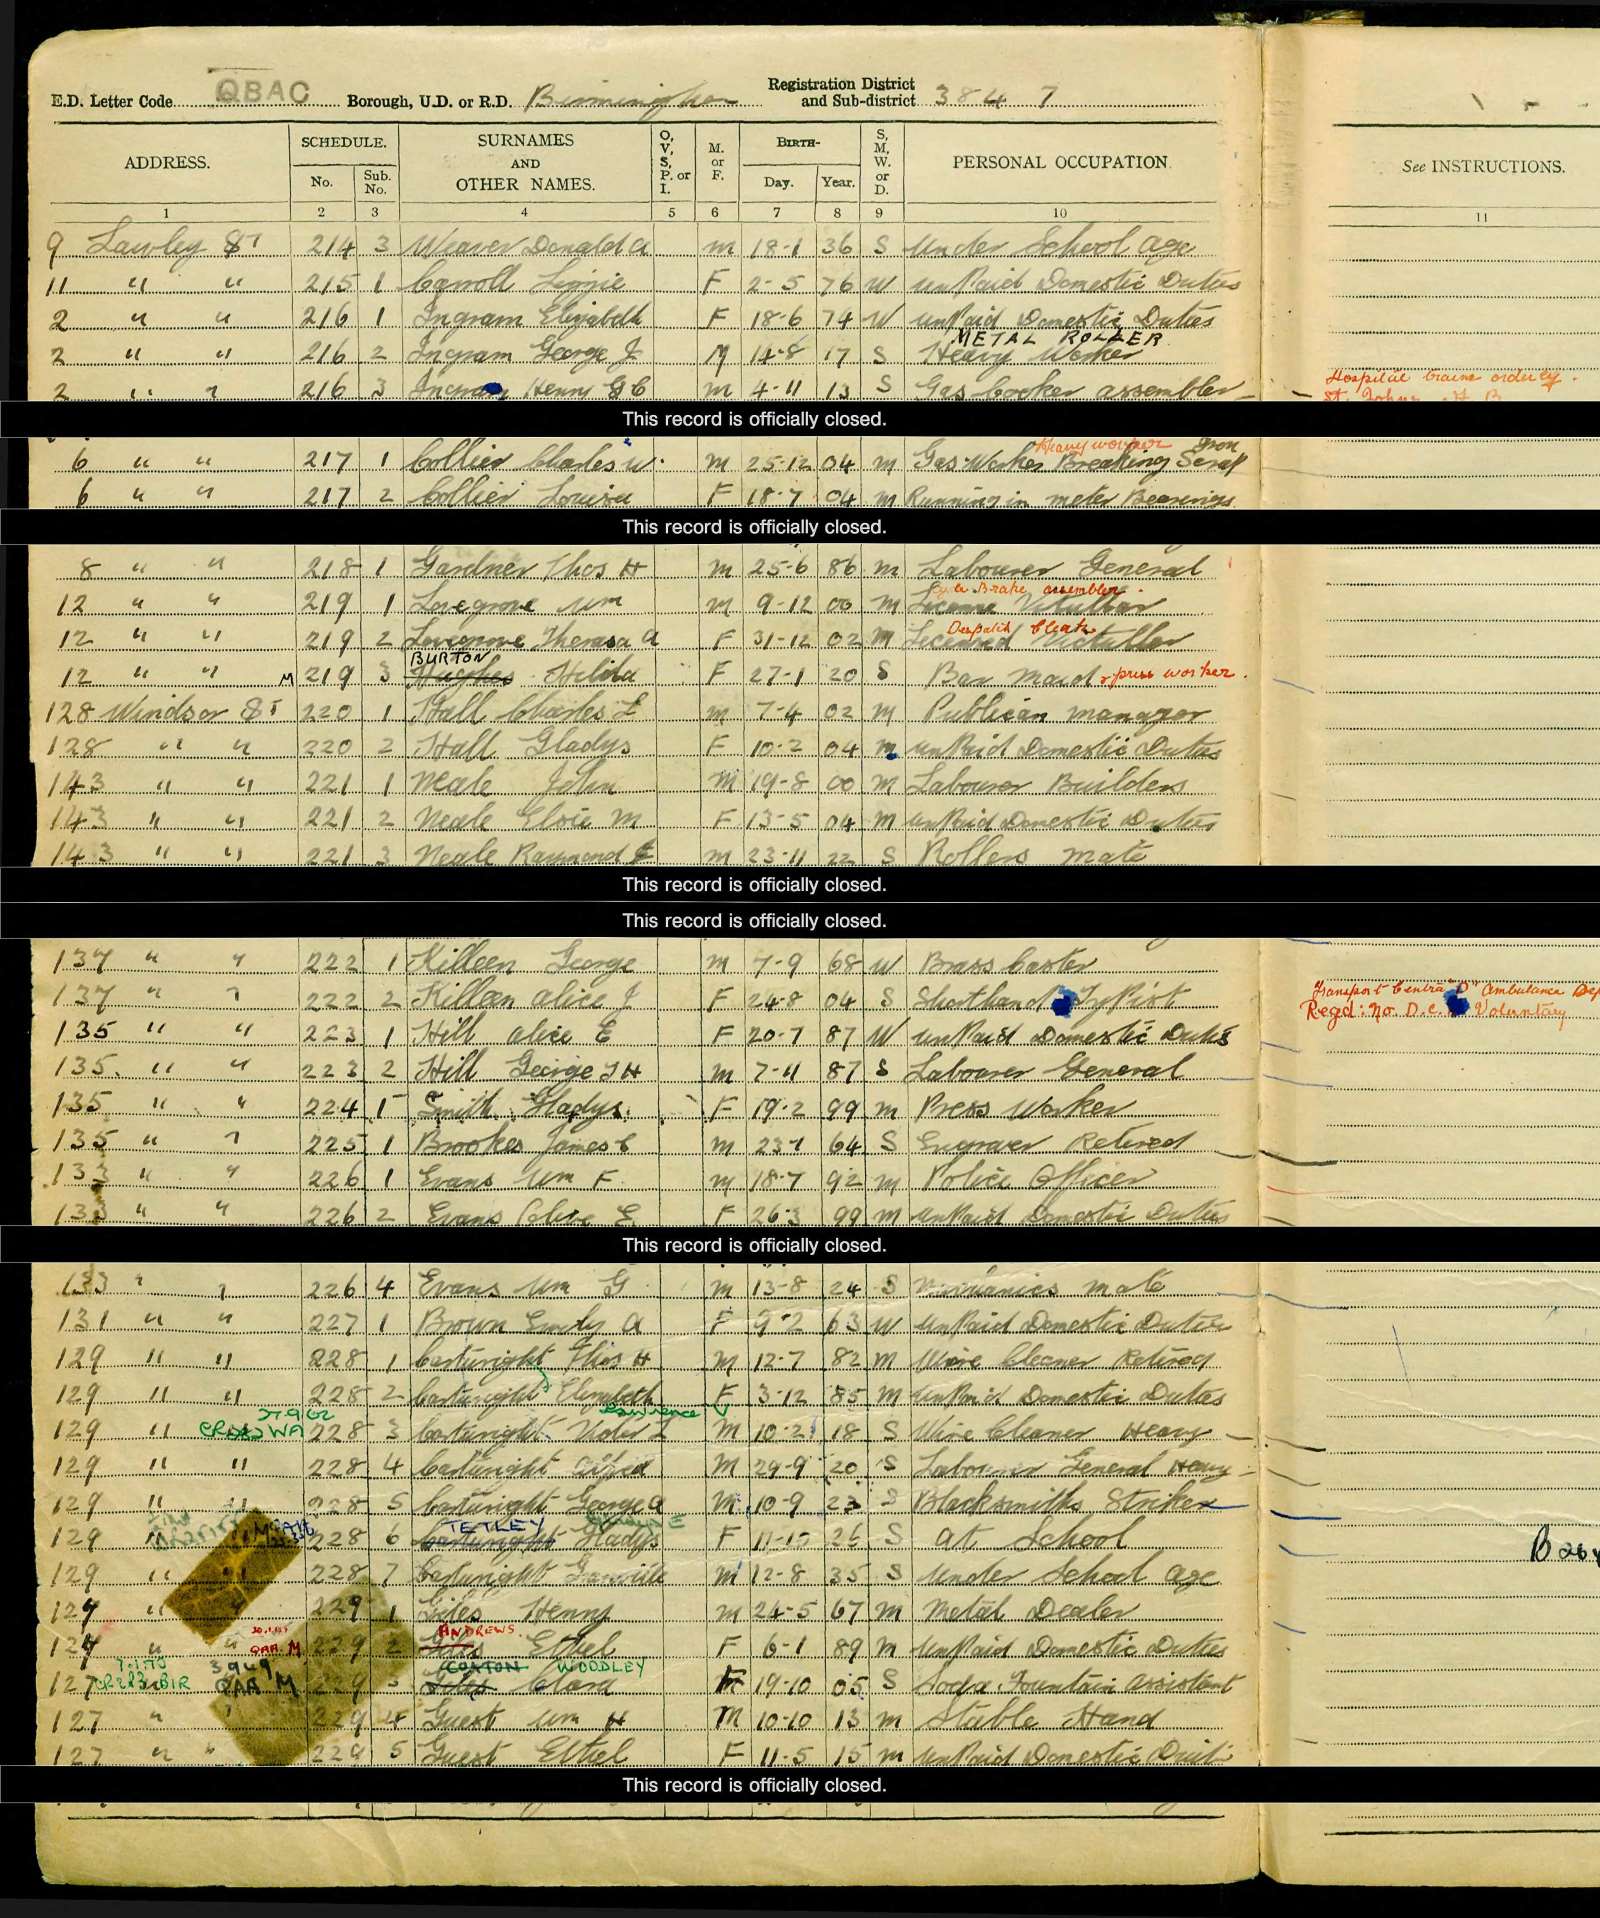 E.D. Letter Code QBAC Borough, U.D. or R.D. Birmingham Registration District and Sub-district 384 7
ADDRESS. SCHEDULE. No. Sub. No. SURNAMES AND OTHER NAMES. O, V, S, P. or I. M. or F. BIRTH- Day. Year. S, M, W. or D. PERSONAL OCCUPATION. See INSTRUCTIONS.
1 2 3 4 5 6 7 8 9 10 11
9 Lawley St 214 3 Weaver Donald A m 18-1 36 S Under School Age
11 " " 215 1 Carroll Lizzie F 2-5 76 W UnPaid Domestic Duties
2 " " 216 1 Ingram Elizabeth F 18-6 74 W UnPaid Domestic Duties
METAL ROLLER
2 " " 216 2 Ingram George J M 14-8 17 S Heavy Worker
2 " " 216 3 Ingram Henry G C m 4-11 13 S Gas Cooker assembler Hospital train orderly.
This record is officially closed.
Heavy worker Iron
6 " " 217 1 Collier Charles W. m 25-12 04 m Gas Worker Breaking Scrap
6 " " 217 2 Collier Louisa F 18-7 04 m Running in meter Bearings
This record is officially closed.
8 " " 218 1 Gardner Thos H m 25-6 86 m Labourer General
Brake assembler.
12 " " 219 1 Lovegrove Wm m 9-12 00 m
Despatch Clerk
12 " " 219 2 Lovegrove Theresa A F 31-12 02 m Licenced Victuller
BURTON
12 " " M 219 3 Hughes Hilda F 27-1 20 S Bar Maid press worker.
128 Windsor St 220 1 Hall Charles L m 7-4 02 m Publican manager
128 " " 220 2 Hall Gladys F 10-2 04 m UnPaid Domestic Duties
143 " " 221 1 Neale John m 19-8 00 m Labourer Builders
143 " " 221 2 Neale Elsie M F 13-5 04 m UnPaid Domestic Duties
143 " " 221 3 Neale Raymond m 23-11 22 S Rollers mate
This record is officially closed.
This record is officially closed.
137 " " 222 1 Killeen George m 7-9 68 W Brass Caster
137 " " 222 2 Killeen Alice J F 24-8 04 S Shorthand Typist Transport Centre "D" Ambulance
Regd: No. D.C. Voluntary
135 " " 223 1 Hill Alice E F 20-7 87 W UnPaid Domestic Duties
135. " " 223 2 Hill George T H m 7-11 87 S Labourer General
135 " " 224 1 Smith Gladys F 19-2 99 m Press Worker
135 " " 225 1 Brookes James C m 23-1 64 S Engraver Retired
133 " " 226 1 Evans Wm F m 18-7 92 m Police Officer
133 " " 226 2 Evans Olive E F 26-3 99 m UnPaid Domestic Duties
This record is officially closed.
133 " " 226 4 Evans Wm G m 13-8 24 S Mechanics mate
131 " " 227 1 Brown Emily A F 9-2 63 W UnPaid Domestic Duties
129 " " 228 1 Cartwright Elias H m 12-7 82 m Wire Cleaner Retired
129 " " 228 2 Cartwright Elizabeth F 3-12 85 m UnPaid Domestic Duties
27.9.62 Lawrence V
129 " WA 228 3 Cartwright Victor L M 10-2 18 S Wire Cleaner Heavy
129 " " 228 4 Cartwright Alfred M 29-9 20 S Labourer General Heavy
129 " " 228 5 Cartwright George A M 10-9 23 S Blacksmiths Striker
TETLEY
129 " " 228 6 Cartwright Gladys F 26 S at School
129 " " 228 7 Cartwright Granville m 12-8 35 S Under School Age
127 " " 229 1 Giles Henry m 24-5 67 m Metal Dealer
ANDREWS.
127 " " M 229 2 Giles Ethel F 6-1 89 m UnPaid Domestic Duties
3949 COATON WOODLEY
127 BIR M 229 3 Giles Clara F 19-10 05 S Soda Fountain Assistant
127 " " 229 4 Guest Wm H M 10-10 13 m Stable Hand
127 " " 229 5 Guest Ethel F 11-5 15 m UnPaid Domestic Duti
This record is officially closed.